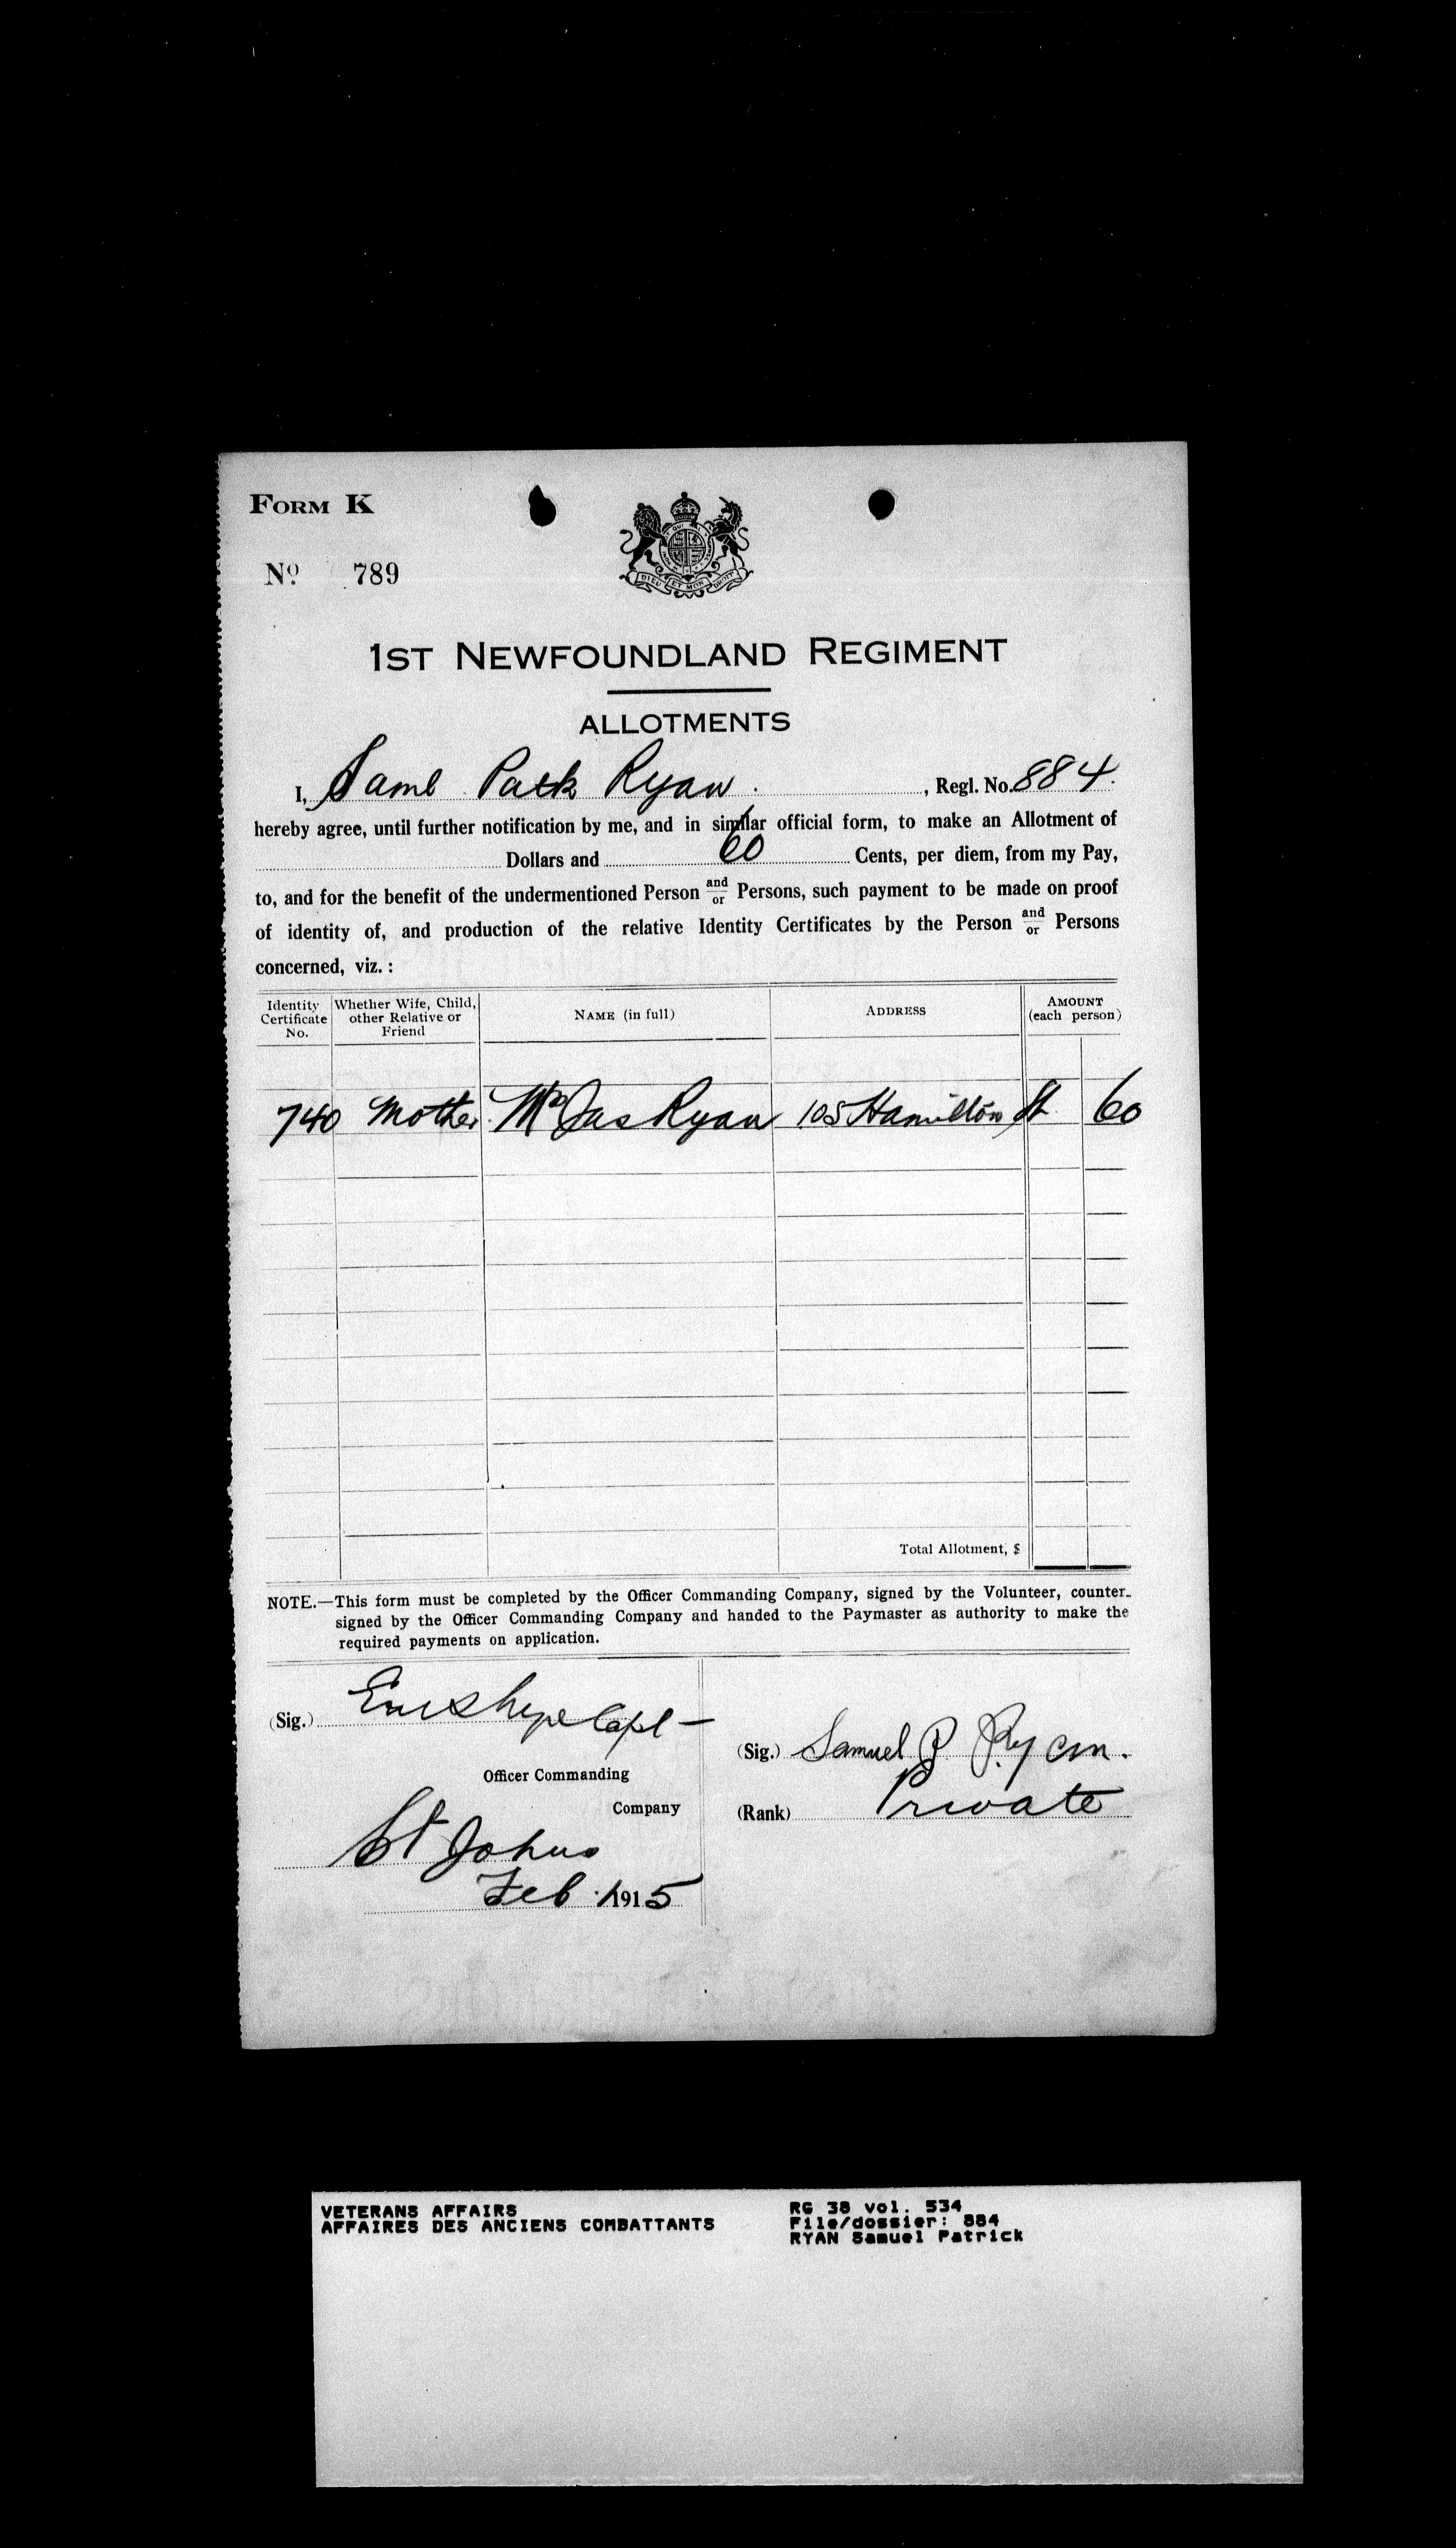 FORM K
No. 789
DIEU ET MON DROIT
1ST NEWFOUNDLAND REGIMENT
ALLOTMENTS
I, Saml Patk Ryan. , Regl. No. 884.
hereby agree, until further notification by me, and in similar official form, to make an Allotment of
Dollars and 60 Cents, per diem, from my Pay,
to, and for the benefit of the undermentioned Person and/or Persons, such payment to be made on proof
of identity of, and production of the relative Identity Certificates by the Person and/or Persons
concerned, viz. :
Identity Certificate No. Whether Wife, Child, other Relative or Friend NAME (in full) ADDRESS AMOUNT (each person)
740 Mother Mrs Jas Ryan 105 Hamilton St 60
Total Allotment, $
NOTE.—This form must be completed by the Officer Commanding Company, signed by the Volunteer, counter-
signed by the Officer Commanding Company and handed to the Paymaster as authority to make the
required payments on application.
(Sig.) Capt —
Officer Commanding
Company
St Johns
Feb 1915
(Sig.) Samuel P. Ryan.
(Rank) Private
VETERANS AFFAIRS
AFFAIRES DES ANCIENS COMBATTANTS
RG 38 vol. 534
File/dossier: 884
RYAN Samuel Patrick